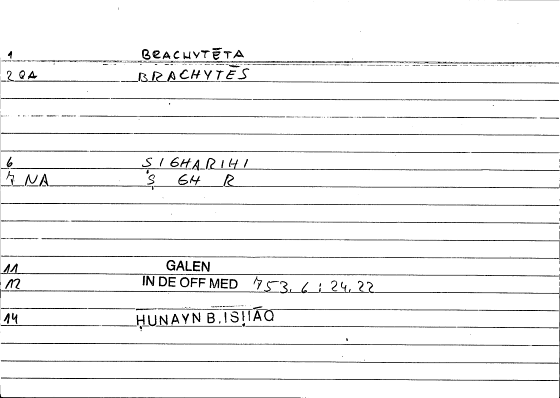 1 BRACHYTĒTA
2 QA BRACHYTĒS
6 SIGHARIHI
7 NA Ṣ GH R
11 GALEN
12 IN DE OFF MED 753. 6 : 24.22
14 ḤUNAYN B. ISḤĀQ